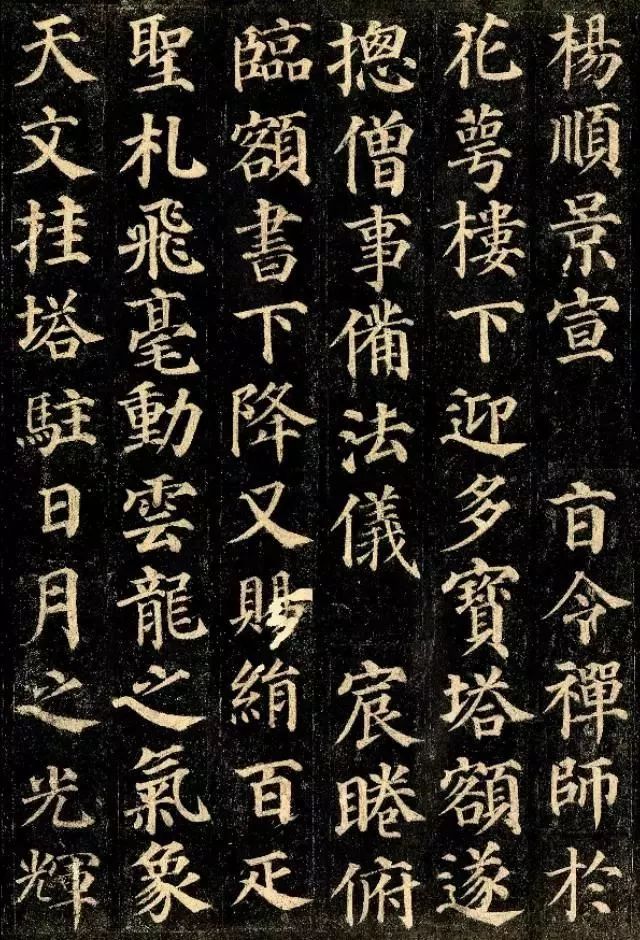 楊順景宣 㫖令禪師於
花萼樓下迎多寶塔額遂
揔僧事備法儀 宸睠俯
臨額書下降又賜絹百疋
聖札飛毫動雲龍之氣象
天文挂塔駐日月之光輝